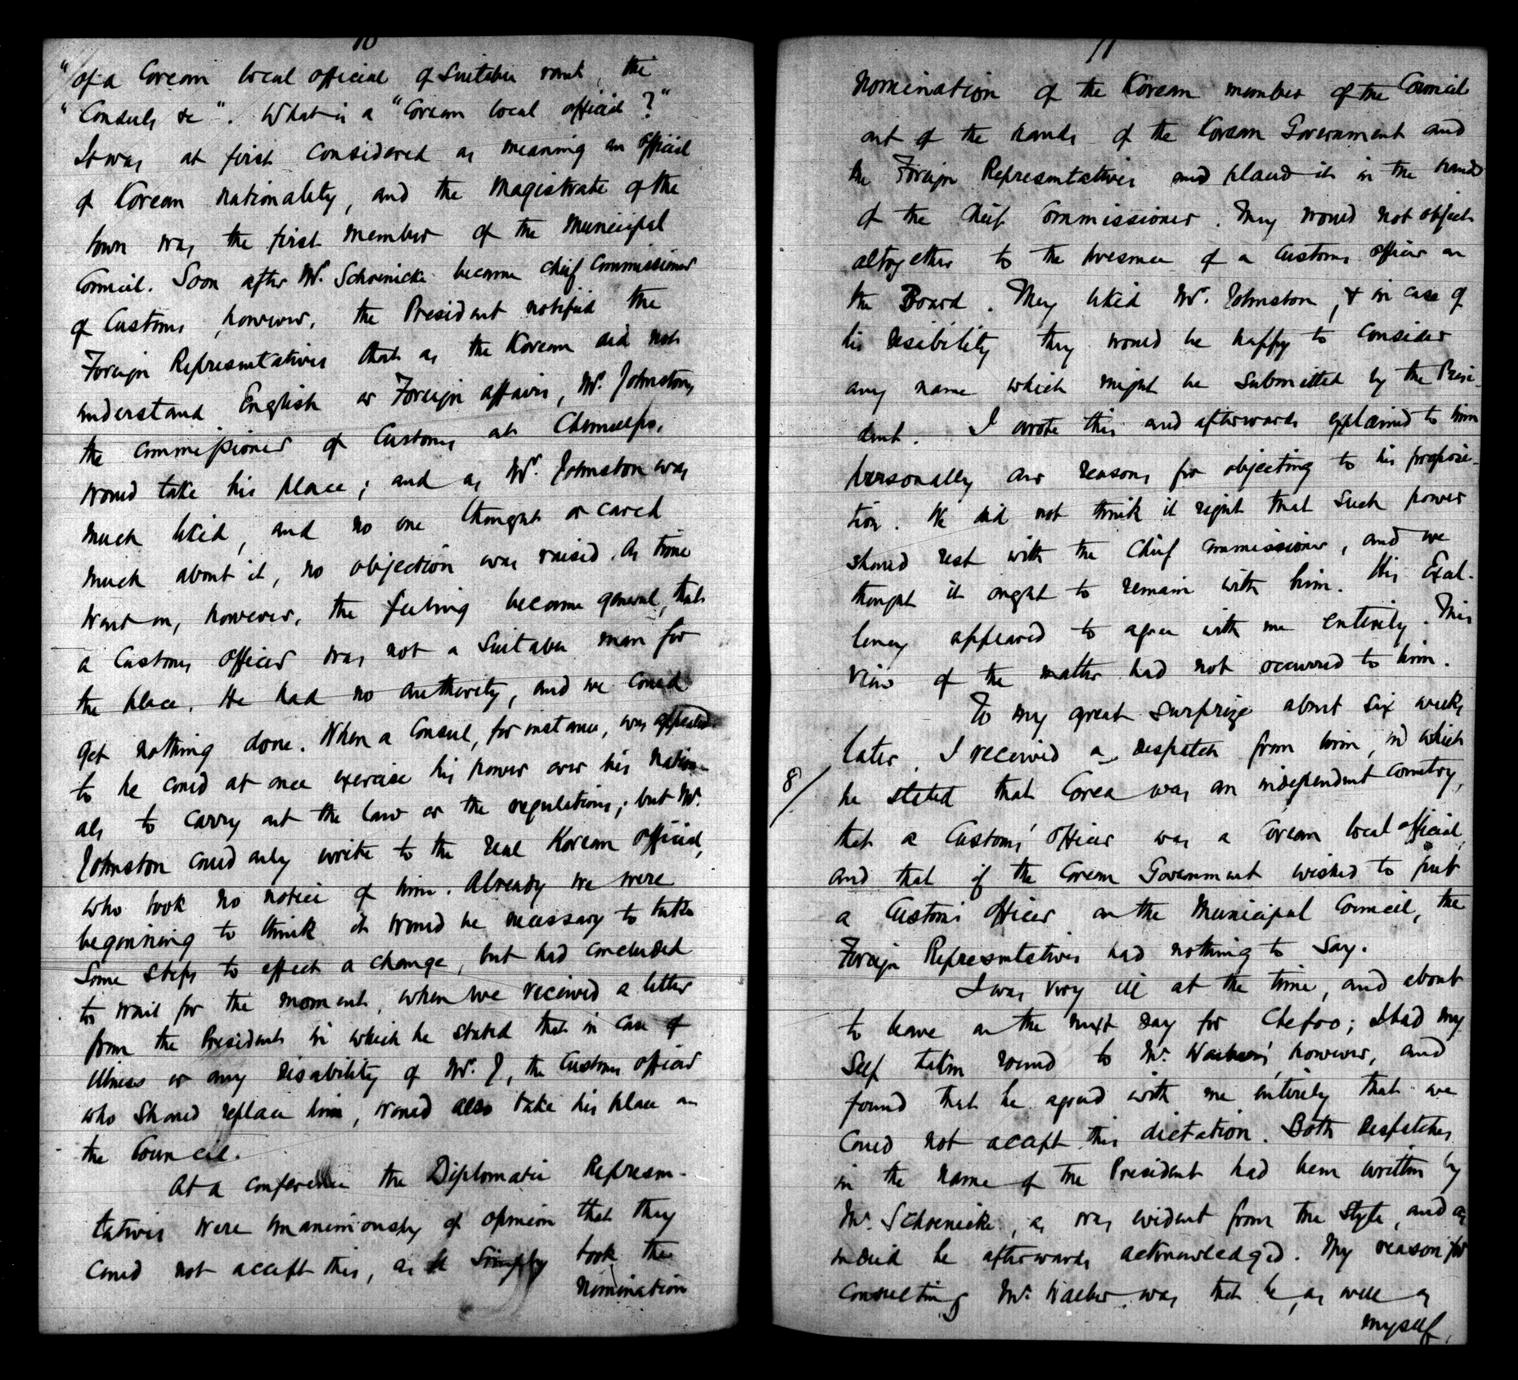 10
"of a Corean local official of suitable rank, the
"Consuls &c". What is a "Corean local official?"
It was at first considered as meaning an official
of Korean nationality, and the Magistrate of the
town was the first member of the Municipal
Council. Soon after Mr. Schoenicke became Chief Commissioner
of Customs, however, the President notified the
Foreign Representatives that as the Korean did not
understand English or Foreign affairs, Mr. Johnston,
the Commissioner of Customs at Chemulpo,
would take his place; and as Mr. Johnston was
much liked, and no one thought or cared
much about it, no objection was raised. As time
went on, however, the feeling became general, that
a Customs officer was not a suitable man for
the place. He had no authority, and we could
get nothing done. When a Consul, for instance, was appealed
to he could at once exercise his power over his nation-
als to carry out the law or the regulations; but Mr.
Johnston could only write to the real Korean official,
who took no notice of him. Already we were
beginning to think it would be necessary to take
some steps to effect a change, but had concluded
to wait for the moment, when we received a letter
from the President in which he stated that in case of
illness or any disability of Mr. J, the Customs officer
who should replace him, would also take his place on
the Council.
At a conference the Diplomatic Represen-
tatives were unanimously of opinion that they
could not accept this, as it simply took the
nomination
11
nomination of the Korean member of the Council
out of the hands of the Korean Government and
the Foreign Representatives and placed it in the hands
of the Chief Commissioner. They would not object
altogether to the presence of a Customs officer on
the Board. They liked Mr. Johnston, & in case of
his disibility they would be happy to consider
any name which might be submitted by the Presi-
dent. I wrote this and afterwards explained to him
personally our reasons for objecting to his proposi-
tion. We did not think it right that such power
should rest with the Chief Commissioner, and we
thought it ought to remain with him. His Excel-
lency appeared to agree with me entirely. This
view of the matter had not occurred to him.
To my great surprize about six weeks
later, I received a despatch from him, in which
8/
he stated that Corea was an independent country,
that a Customs' Officer was a Corean local official,
and that if the Corean Government wished to put
a Customs officer on the Municipal Council, the
Foreign Representatives had nothing to say.
I was very ill at the time, and about
to leave on the next day for Chefoo; I had my
self taken round to Mr. Waeber's, however, and
found that he agreed with me entirely that we
could not accept this dictation. Both despatches
in the name of the President had been written by
Mr. Schoenicke, as was evident from the style, and as
indeed he afterwards acknowledged. My reason for
consulting Mr. Waeber was that he, as well as
myself,